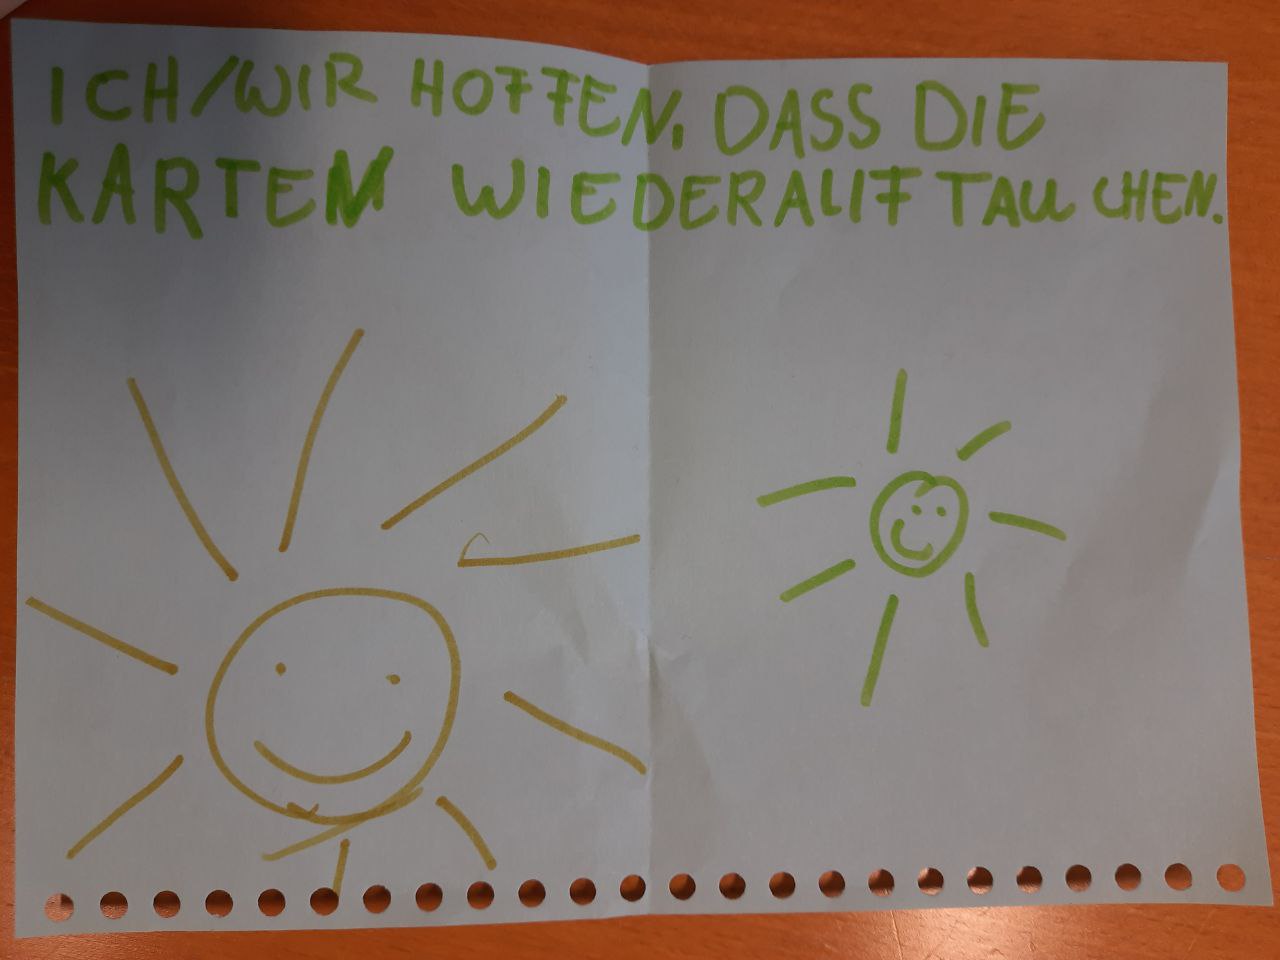 ICH/WIR HOFFEN, DASS DIE
KARTEN WIEDERAUFTAUCHEN.